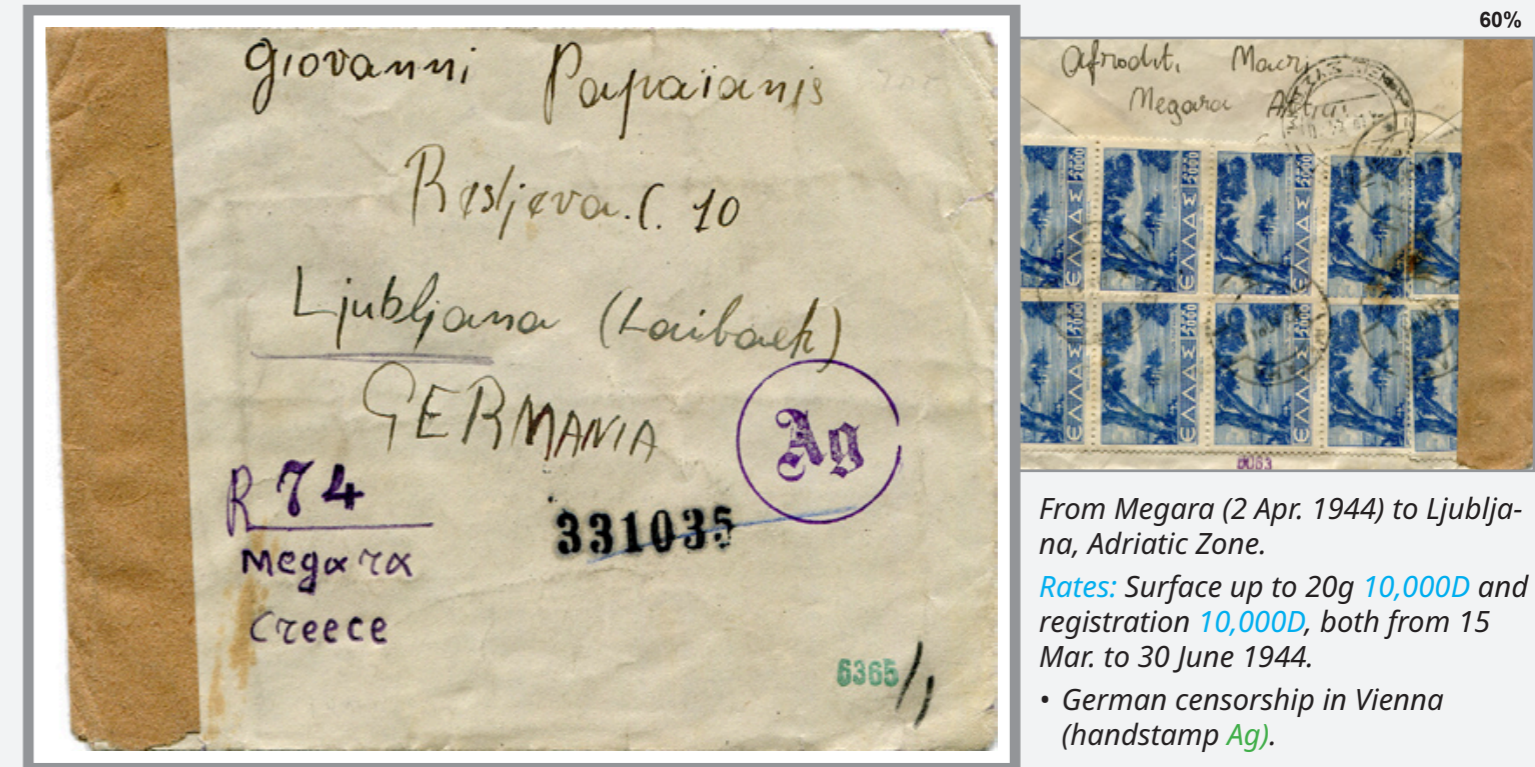 Giovanni Papaianis
Resljeva. C. 10
Ljubljana (Laibach)
GERMANIA
Ag
R 74
Megara
Creece
331035
6365/1
60%
Afrodit. Macri
Megara Attici
2000 2000 2000
ΕΛΛΑΣ ΕΛΛΑΣ ΕΛΛΑΣ
2000 2000 2000
ΕΛΛΑΣ ΕΛΛΑΣ ΕΛΛΑΣ
0063
From Megara (2 Apr. 1944) to Ljublja-
na, Adriatic Zone.
Rates: Surface up to 20g 10,000D and
registration 10,000D, both from 15
Mar. to 30 June 1944.
• German censorship in Vienna
(handstamp Ag).